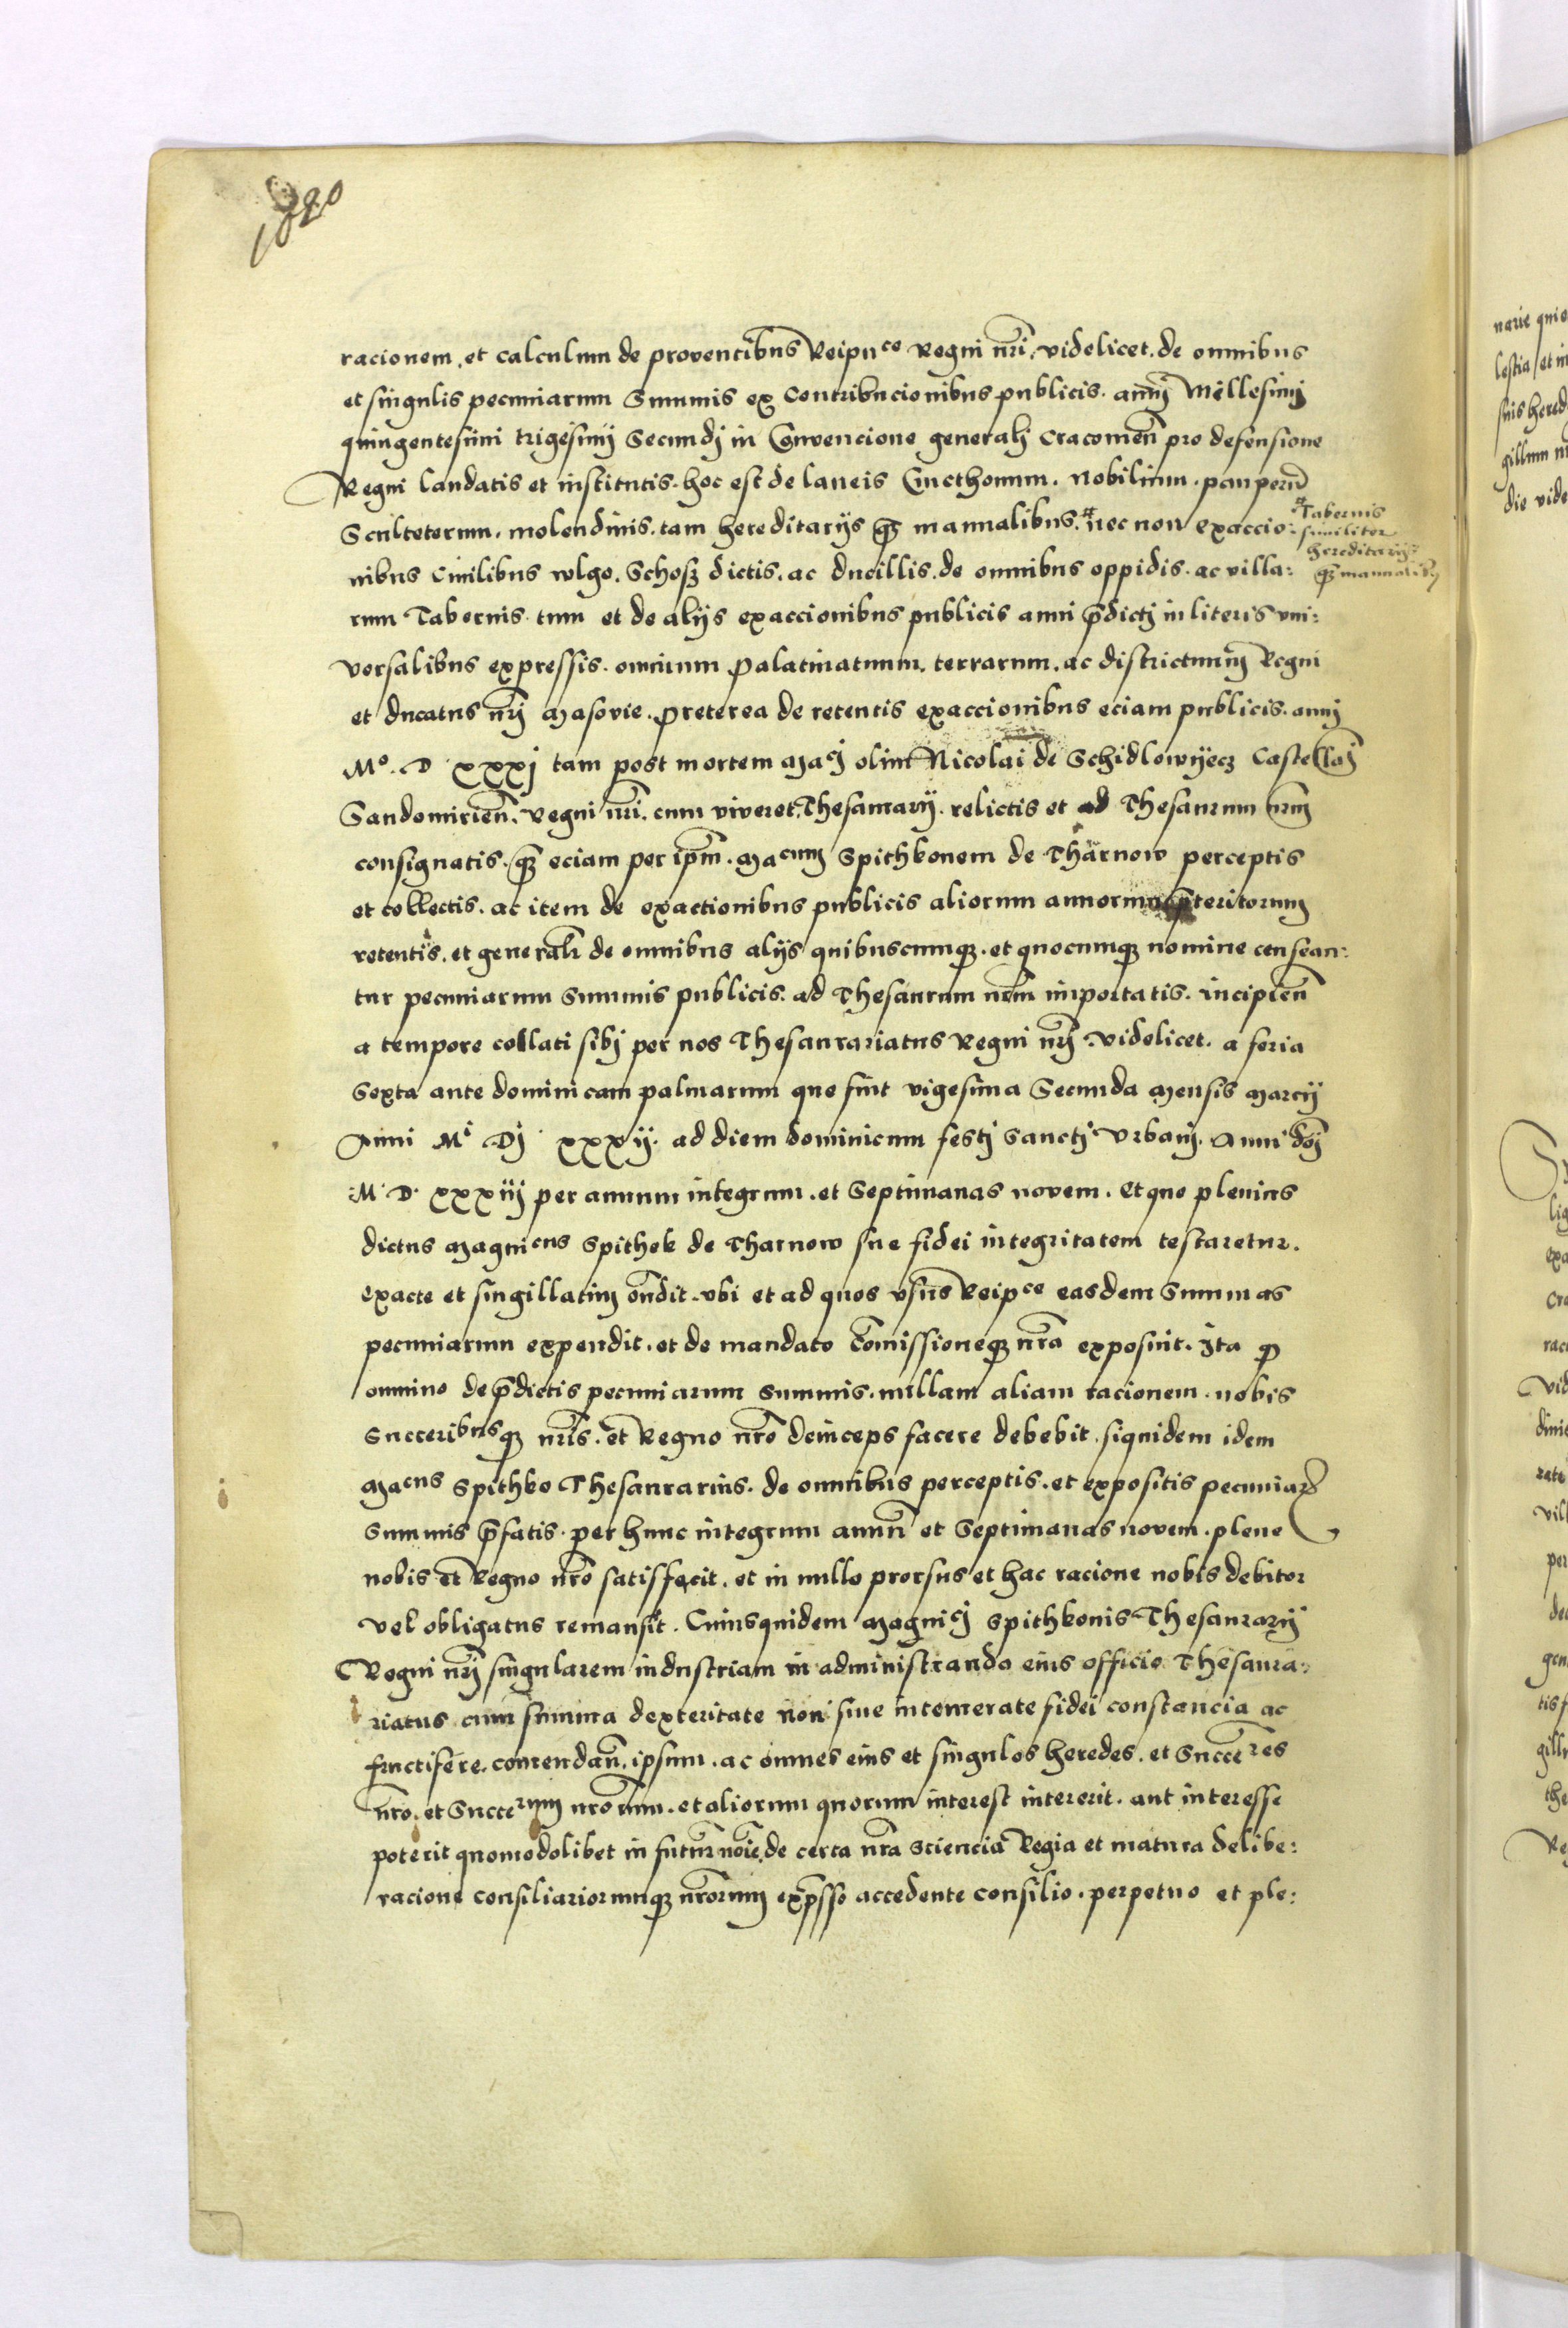 1820
racionem. et calculum de proventibus Reipuce Regni nri. videlicet. de omnibus
et singulis pecuniarum Summis ex Contribucionibus publicis. anni Millesimi
quingentesimi trigesimi Secundj in Convencione generalj cracovien pro defensione
Regni laudatis et institutis. hoc est de laneis Cmethonum. nobilium. pauperu
Scultetorum. molendinis. tam hereditarijs qz manualibus. nec non exaccio:
Tabernis
similiter
hereditarijs
qz manualibus
nibus Civilibus wlgo. Schosz dictis. ac ducillis. de omnibus oppidis. ac villa:
rum Tabernis. tum et de alijs exaccionibus publicis anni pdictj in literis vni:
versalibus expressis. omnium palatinatuum. terrarum. ac districtuum Regni
et ducatus nrj Masovie. preterea de retentis exaccionibus eciam publicis. annj
Mo. D xxxj tam post mortem Macj olim Nicolai de Schidlowyecz Castellanj
Sandomirien. Regni nri. cum viveret, Thesaurarij. relictis et ad Thesaurum nrm
consignatis. qz eciam per ipm. Macum Spithkonem de Tharnow perceptis
et collectis. ac item de exactionibus publicis aliorum annorum pteritorum
retentis. et generali de omnibus alijs quibuscumqz. et quocumqz nomine censean:
tur pecuniarum Summis publicis. ad Thesaurum nrm importatis. incipien
a tempore collati sibj per nos Thesaurariatus Regni nrj videlicet. a feria
Sexta ante dominicam palmarum que fuit vigesima Secunda Mensis Marcij
Anni Mi Dj xxxij. ad diem dominicum festj Sanctj Urbanj. Anni dnj
M. D. xxxiij per annum integrum. et Septimanas novem. Et quo plenius
dictus Magnicus Spithek de Tharnow sue fidei integritatem testaretur.
exacte et singillatim ondit. vbi et ad quos vsus Reipce easdem Summas
pecuniarum expendit. et de mandato comissioneqz nra exposuit. Ita q
omnino de pdictis pecuniarum Summis. nullam aliam racionem. nobis
Succeribusqz nris. et Regno nro deinceps facere debebit. siquidem idem
Macus Spithko Thesaurarius. de omnibus perceptis. et expositis pecuniar
Summis pfatis. per hunc integrum annu et Septimanas novem. plene
nobis et Regno nro satisfecit. et in nullo prorsus et hac racione nobis debitor
vel obligatus remansit. Cuiusquidem Magnicj Spithkonis Thesaurarij
Regni nrj singularem industriam in administrando eius officio Thesaura:
riatus cum summa dexteritate non sine intemerate fidei constancia ac
fructifere. comendan. ipsum. ac omnes eius et singulos heredes. et Succeres
nro. et Succerum nrorum. et aliorum quorum interest intererit. aut interesse
poterit quomodolibet in futur noie. de certa nra sciencia Regia et matura delibe:
racione consiliariorumqz nrorum expsso accedente consilio. perpetuo et ple: